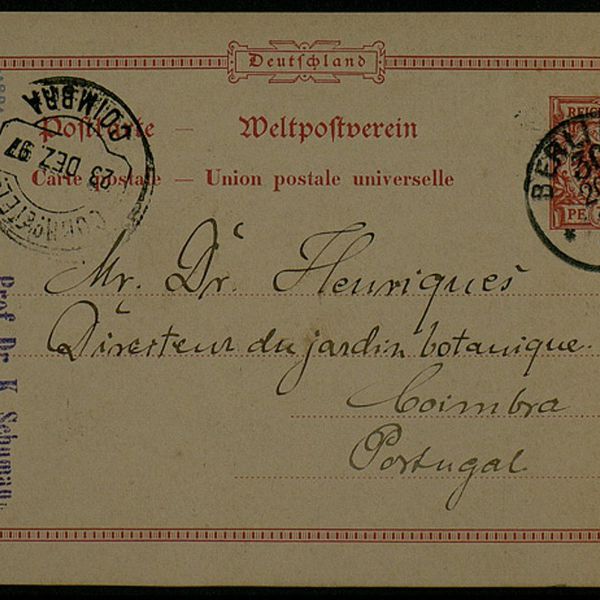 Deutschland
Postkarte — Weltpostverein
Carte postale — Union postale universelle
COIMBRA
23 DEZ 97
REICH
PF
BERLI
Mr. Dr. Henriques
Directeur du jardin botanique
Coimbra
Portugal
Prof. Dr. K. Schuman